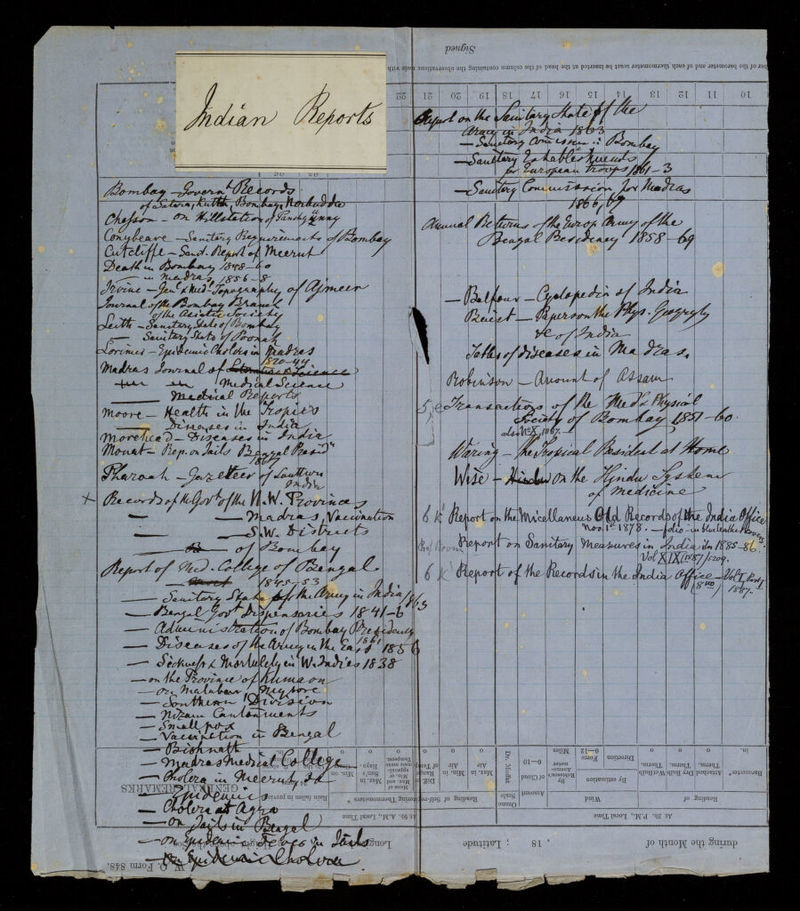 Indian Reports
Bombay Governt Records
of Satara, Kutch, Bombay, Nerbudda
Chesson - on Hill Station of Panchgunny
Conybeare - Sanitary Requirements of Bombay
Cutcliffe - Sanit. Report of Meerut
Death in Bombay 1848-60
— in Madras 1856-8
Irvine - Genl & Medl Topography of Ajmeer
Journal of the Bombay Branch
of the Asiatic Society
Leith - Sanitary State of Bombay
— Sanitary State of Poonah
Lorimer - Epidemic Cholera in Madras
1820-44
Madras Journal of Literature & Science
Medical Science
— Medical Reports
Moore - Health in the Tropics
— Diseases in India
Morehead - Diseases in India
Mouat - Rep. on Jails Bengal Presidy
1867
Pharoah - Gazetteer of Southern
India
x Records of the Govt of the N.W. Provinces
— — Madras, Vaccination
— — S.W. Districts
— of Bombay
Report of Med. College of Bengal
1845-53
— Sanitary State of the Army in India 1863
— Bengal Govt Dispensaries 1841-6
— Administration of Bombay Presidency
1861
— Diseases of the Army in the East 1856
— Sickness & Mortality in W. Indies 1838
— on the Province of Kumaon
— on Malabar, Mysore
— Southern Division
— Nizam Cantonments
— Small pox
— Vaccination in Bengal
— Bishnath
— Madras Medical College
— Cholera in Meerut, &c
— Epidemic
— Cholera at Agra
— on Jails in Bengal
— on Epidemic Fever in Jails
— on Epidemic Cholera
Report on the Sanitary State of the
Army in India 1863
— Sanitary Commission : Bombay
— Sanitary Establishments
for European Troops 1861-3
— Sanitary Commission for Madras
1866, 67
Annual Returns of the Europn Army of the
Bengal Presidency 1858-69
— Balfour - Cyclopedia of India
Beniet - Paper on the Phys. Geogrphy
&c of India
Tables of diseases in Madras.
Robinson - Account of Assam
5 e Transactions of the Medl & Physical
Society of Bombay 1851-60
also No X, 1867.
Waring - the Tropical Resident at Home
Wise - Hindu on the Hindu System
of Medicine
6 k' Report on the Miscellaneous Old Records of the India Office
Nov. 1st 1878. - folio - in blue leather covers.
Report on Sanitary Measures in India in 1885-86.
Vol XIX 1887/5209.
6 k' Report of the Records in the India Office - Vol I, Part I
(8vo) 1887.
Signed
10 11 12 13 14 15 16 17 18 19 20 21 22
GENERAL REMARKS
Reading of Self-registering Thermometers
Rain fallen in previous
Wind
Reading of
Direction
Force
0-12
Estimation by
Robinson's
Anemo-
meter
Miles
Amount of Cloud 0-10
Ozone
Dr. Moffat's
Scale
Max. in Air
Min. in Air
Diff.
At 9h. A.M., Local Time
At 3h. P.M., Local Time
during the Month of
18 ; Latitude
W. O. Form 848.